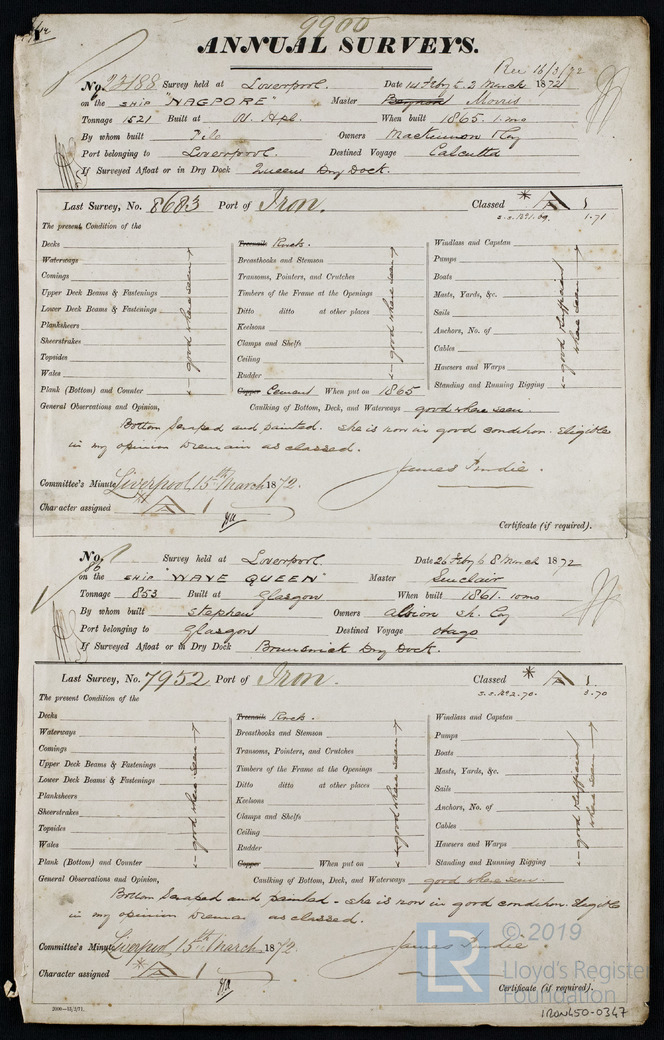 9900
ANNUAL SURVEYS.
Rec 16/3/72
No. 22188 Survey held at Liverpool. Date 14 Feby to 2 March 1872
on the SHIP "NAGPORE" Master Morris
Tonnage 1521 Built at W. Hpl. When built 1865. 1.mo
By whom built Pile Owners Mackinnon & Coy
Port belonging to Liverpool. Destined Voyage Calcutta
If Surveyed Afloat or in Dry Dock Queens Dry Dock.
Last Survey, No. 8683 Port of Iron. Classed * A 1
s.s. No 1. 69. 1.71
The present Condition of the
Decks Treenails Rivets. Windlass and Capstan
Waterways Breasthooks and Stemson Pumps
Comings Transoms, Pointers, and Crutches Boats
Upper Deck Beams & Fastenings Timbers of the Frame at the Openings Masts, Yards, &c.
Lower Deck Beams & Fastenings Ditto ditto at other places Sails
Planksheers Keelsons Anchors, No. of
Sheerstrakes Clamps and Shelfs Cables
Topsides Ceiling Hawsers and Warps
Wales Rudder Standing and Running Rigging
good where seen
good where seen
good & sufficient where seen
Plank (Bottom) and Counter Copper Cement When put on 1865
General Observations and Opinion, Caulking of Bottom, Deck, and Waterways good where seen.
Bottom scraped and painted. She is now in good condition. Eligible
in my opinion to remain as classed.
James Tindie.
Committee's Minute Liverpool 15th March 1872.
Character assigned * A 1
Certificate (if required).
No. 86 Survey held at Liverpool. Date 26 Feby to 8 March 1872
on the SHIP "WAVE QUEEN" Master Sinclair
Tonnage 853 Built at Glasgow When built 1861. 10mo
By whom built Stephen Owners Albion Sh. Coy
Port belonging to Glasgow Destined Voyage Otago
If Surveyed Afloat or in Dry Dock Brunswick Dry Dock.
Last Survey, No. 7952 Port of Iron. Classed * A 1
s.s. No 2. 70. 3.70
The present Condition of the
Decks Treenails Rivets. Windlass and Capstan
Waterways Breasthooks and Stemson Pumps
Comings Transoms, Pointers, and Crutches Boats
Upper Deck Beams & Fastenings Timbers of the Frame at the Openings Masts, Yards, &c.
Lower Deck Beams & Fastenings Ditto ditto at other places Sails
Planksheers Keelsons Anchors, No. of
Sheerstrakes Clamps and Shelfs Cables
Topsides Ceiling Hawsers and Warps
Wales Rudder Standing and Running Rigging
good where seen
good where seen
good & sufficient where seen
Plank (Bottom) and Counter Copper When put on
General Observations and Opinion, Caulking of Bottom, Deck, and Waterways good where seen.
Bottom scraped and painted. She is now in good condition. Eligible
in my opinion to remain as classed.
James Tindie
Committee's Minute Liverpool 15th March 1872.
Character assigned * A 1
Certificate (if required).
© 2019
LR
Lloyd's Register
Foundation
IRON450-0347